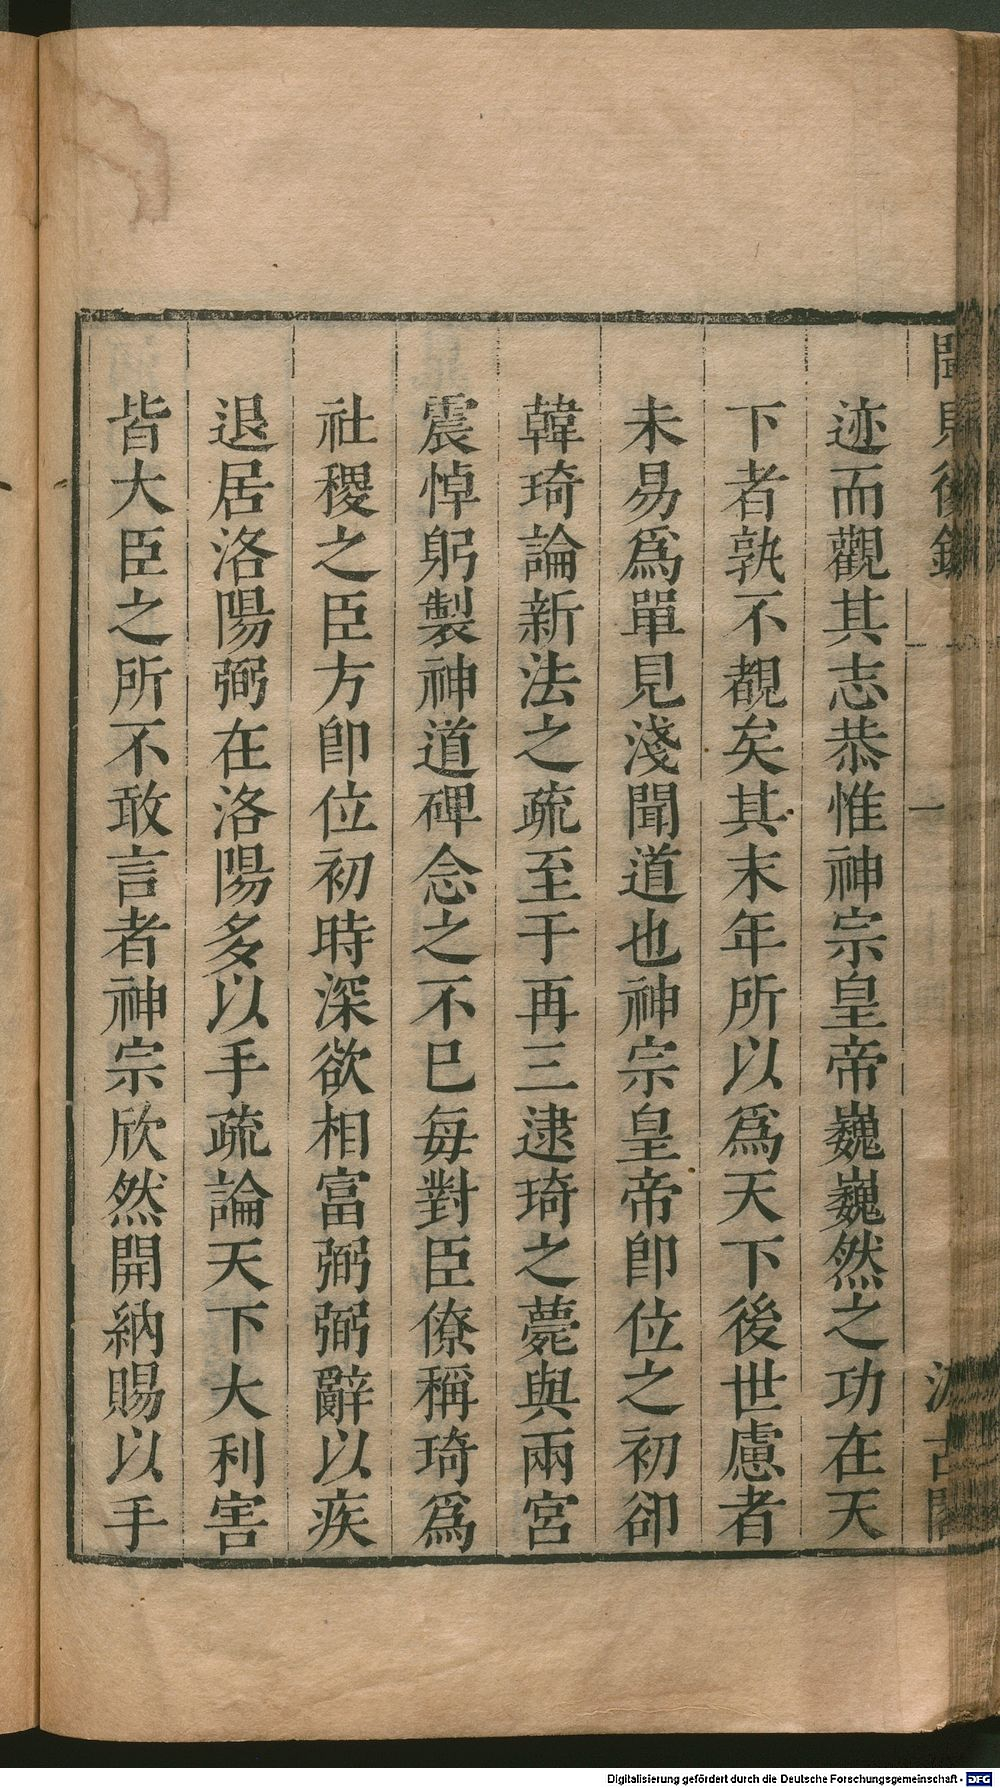 聞見後錄
一
汲古閣
迹而觀其志恭惟神宗皇帝巍巍然之功在天
下者孰不覩矣其末年所以爲天下後世慮者
未易爲單見淺聞道也神宗皇帝卽位之初卻
韓琦論新法之疏至于再三逮琦之薨與兩宮
震悼躬製神道碑念之不已每對臣僚稱琦爲
社稷之臣方卽位初時深欲相富弼弼辭以疾
退居洛陽弼在洛陽多以手疏論天下大利害
皆大臣之所不敢言者神宗欣然開納賜以手
Digitalisierung gefördert durch die Deutsche Forschungsgemeinschaft - DFG